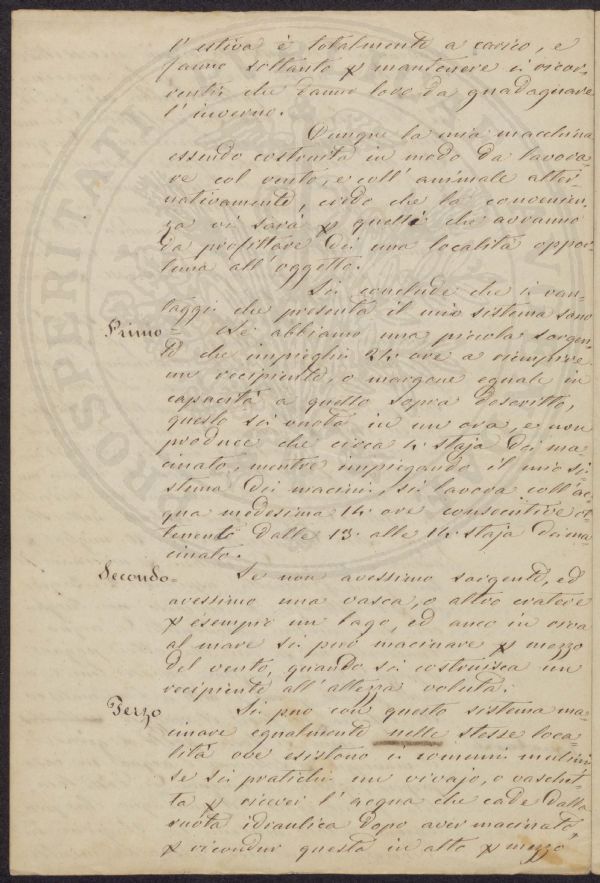 l'estiva è totalmente a carico, e
fanno soltanto p mantenere i ricor-
renti che danno loro da guadagnare
l'inverno.
Dunque la mia macchina
essendo costruita in modo da lavora-
re col vento, e coll'animale alter-
nativamente, credo che la convenien-
za vi sarà p quelli che avranno
da profittare di una località oppor-
tuna all'oggetto.
Si conclude che i van-
taggi che presenta il mio sistema sono
Primo = Se abbiamo una piccola sorgen-
te che impieghi 24 ore a riempire
un recipiente, o margone eguale in
capacità a quello sopra descritto,
questo si vuota in un ora, e non
produce che circa 4 staja di ma-
cinato, mentre impiegando il mio si-
stema di macini, si lavora coll'ac-
qua medesima 14 ore consecutive ot-
tenendo dalle 13 alle 14 staja di ma-
cinato.
Secondo = Se non avessimo sorgente, ed
avessimo una vasca, o altro cratere
p esempio un lago, ed anco in riva
al mare si può macinare p mezzo
del vento, quando si costruisca un
recipiente all'altezza voluta.
Terzo Si può con questo sistema ma-
cinare egualmente nelle stesse loca-
lità ove esistono i comuni mulini
se si pratichi un vivajo, o vaschet-
ta p ricever l'acqua che cade dalla
ruota idraulica dopo aver macinato,
p ricondur questa in alto p mezzo
PROSPERITATI